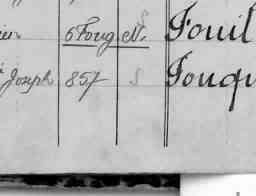 6 Foug N. Fouil
Joseph 857 S Fouqu